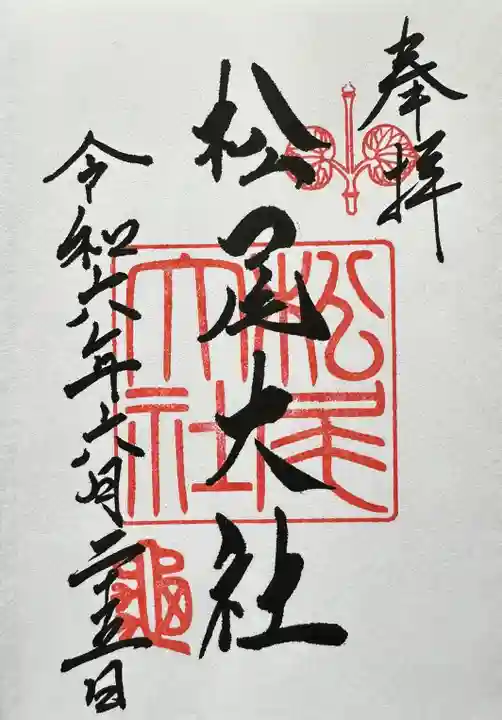 奉拝
松尾大社
松尾大社
令和六年六月二十五日